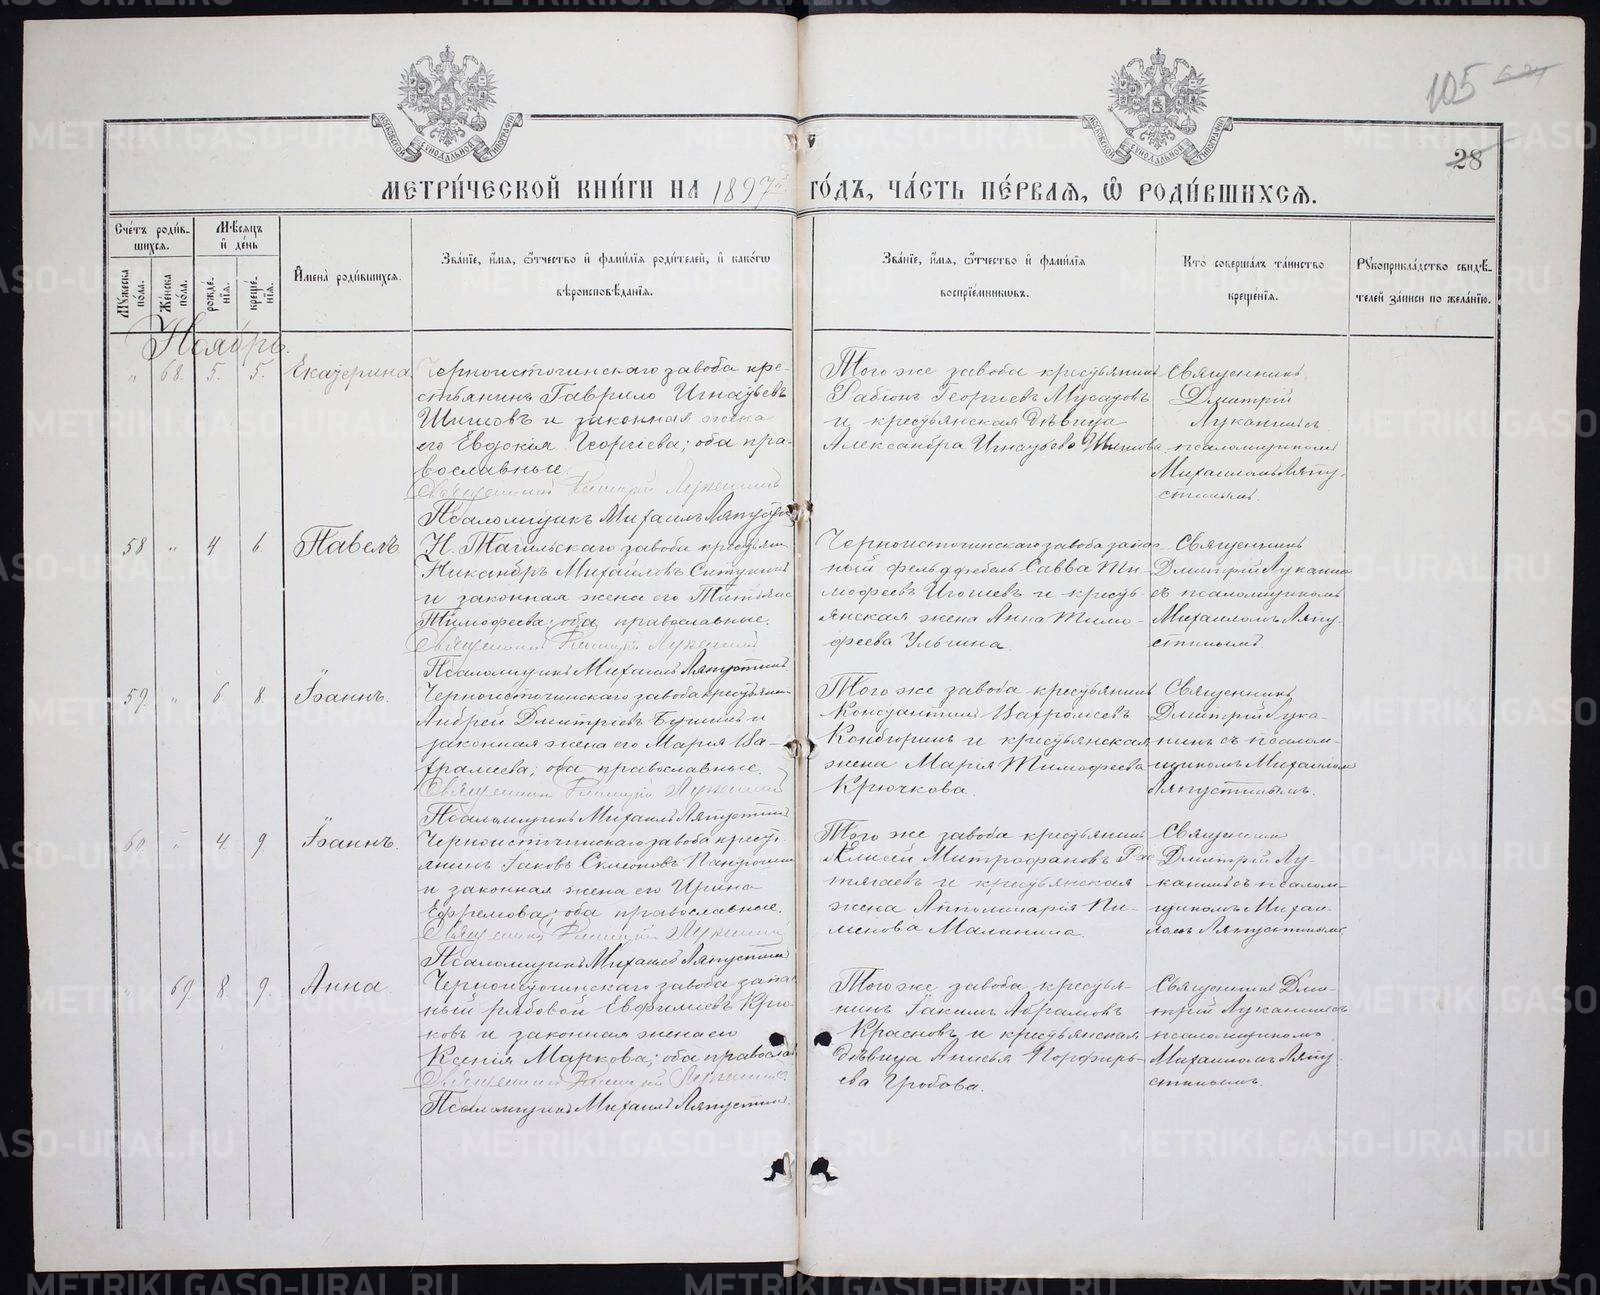 105
28
МОСКОВСКОЙ СѴНОДАЛЬНОЙ ТИПОГРАФІИ
МОСКОВСКОЙ СѴНОДАЛЬНОЙ ТИПОГРАФІИ
МЕТРИ́ЧЕСКОЙ КНИ́ГИ НА 1897 ГО́ДЪ, ЧА́СТЬ ПЕ́РВАѦ, Ѽ РОДИ́ВШИХСѦ.
Сче́тъ роди́в-
шихся.
Мѣ́сяцъ
и҆ де́нь
Мꙋ́жеска
по́ла.
Же́нска
по́ла.
рожде́-
нїѧ.
креще́-
нїѧ.
И҆мена̀ роди́вшихся.
Зва́нїе, и҆́мѧ, ѻ҆́тчество и҆ фами́лїѧ роди́телей, и҆ како́гѡ
вѣроисповѣ́данїѧ.
Зва́нїе, и҆́мѧ, ѻ҆́тчество и҆ фами́лїѧ
воспрїе́мникѡвъ.
Кто̀ соверша́лъ та́инство
креще́нїѧ.
Рꙋкоприкла́дство свидѣ́-
телей за́писи по жела́нїю.
Ноябрь.
" 68. 5. 5. Екатерина
Черноисточинскаго завода кре-
стьянинъ Гаврило Игнатьевъ
Шишовъ и законная жена
его Евдокія Георгиева; оба пра-
вославные.
Священникъ Димитрій Луканинъ
Псаломщикъ Михаилъ Ляпустинъ
Того же завода крестьянинъ
Георгіевъ Мусатовъ
и крестьянская дѣвица
Александра Игнатьева Шишова
Священникъ
Дмитрій
Луканинъ съ
псаломщикомъ
Михаиломъ Ляпу-
стинымъ.
58 " 4 6. Павелъ
Н. Тагильскаго завода крестьян.
Никандръ Михайловъ
и законная жена его Татьяна
Тимофеева; оба православные.
Священникъ Димитрій Луканинъ
Псаломщикъ Михаилъ Ляпустинъ
Черноисточинскаго завода запас-
ный фельдфебель Савва Ти-
мофеевъ Игошевъ и кресть-
янская жена Анна Тимо-
феева Ульгина.
Священникъ
Дмитрій Лукани
съ псаломщикомъ
Михаиломъ Ляпу-
стинымъ.
59. " 6 8. Іоаннъ.
Черноисточинскаго завода крестьянин
Андрей Дмитріевъ и
законная жена его Марія Ва-
храмеева; оба православные.
Священникъ Димитрій Луканинъ
Псаломщикъ Михаилъ Ляпустинъ
Того же завода крестьянинъ
Константинъ Вахромеевъ
и крестьянская
жена Марья Тимофеева
Крючкова.
Священникъ
Дмитрій Лука-
нинъ съ псалом-
щикомъ Михаиломъ
Ляпустинымъ.
60. " 4 9 Іоаннъ.
Черноисточинскаго завода кресть-
янинъ Іаковъ
и законная жена его Ирина
Ефремова; оба православные.
Священникъ Димитрій Луканинъ
Псаломщикъ Михаилъ Ляпустинъ
Того же завода крестьянинъ
Елисей Митрофановъ
и крестьянская
жена Апполинарія Пи-
менова Малинина.
Священникъ
Дмитрій Лу-
канинъ съ псалом-
щикомъ Михаи-
ломъ Ляпустинымъ
69. 8. 9. Анна
Черноисточинскаго завода запас-
ный рядовой Евфимиевъ Крю-
ковъ и законная жена его
Ксенія Маркова; оба православ
Священникъ Димитрій Луканинъ
Псаломщикъ Михаилъ Ляпустинъ.
Того же завода крестья-
нинъ Іакимъ Абрамовъ
Красновъ и крестьянская
дѣвица Анисья Порфирь-
ева Гробова.
Священникъ Дми-
трій Луканинъ съ
псаломщикомъ
Михаиломъ Ляпу-
стинымъ.
METRIKI.GASO-URAL.RU